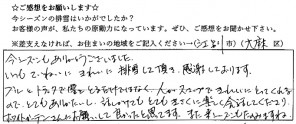 ☆ご感想をお願いします☆
今シーズンの排雪はいかがでしたか?
お客様の声が、私たちの原動力になっています。ぜひ、ご感想をお聞かせ下さい。
※差支えなければ、お住まいの地域をご記入ください→(江別市)(大麻区)
今シーズンもありがとうございました。
いつもていねいにきれいに排雪して頂き、感謝しております。
ブルドーザで優しくとるだけでなく人がスコップできれいにとってくれる
ので、とてもありがたいし、話しかけてもとても気さくに楽しく会話してくださり、
さんにお願いして良かったと思ってます。また来シーズンもたのみますね。